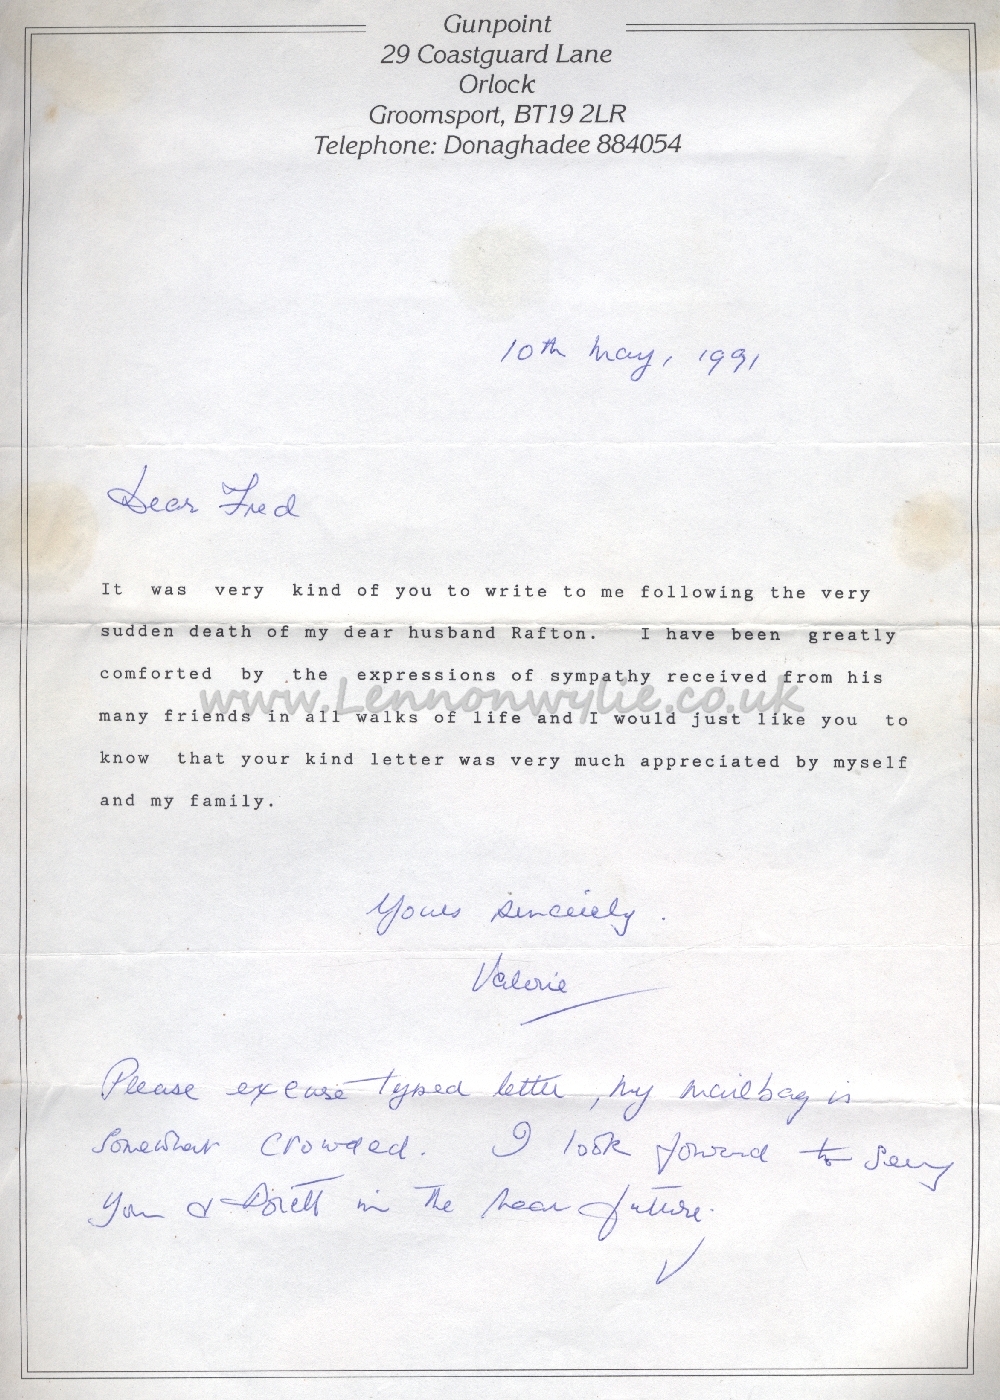 Gunpoint
29 Coastguard Lane
Orlock
Groomsport, BT19 2LR
Telephone: Donaghadee 884054
10th May, 1991
Dear Fred
It was very kind of you to write to me following the very
sudden death of my dear husband Rafton. I have been greatly
comforted by the expressions of sympathy received from his
www.Lennonwylie.co.uk
many friends in all walks of life and I would just like you to
know that your kind letter was very much appreciated by myself
and my family.
Yours sincerely.
Valerie
Please excuse typed letter, my mailbag is
somewhat crowded. I look forward to seeing
you & in the near future.
V